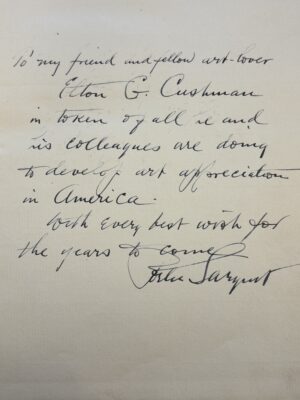 To my friend and fellow art-lover
Elton G. Cushman
in token of all he and
his colleagues are doing
to develop art appreciation
in America.
With every best wish for
the years to come
Porter Sargent